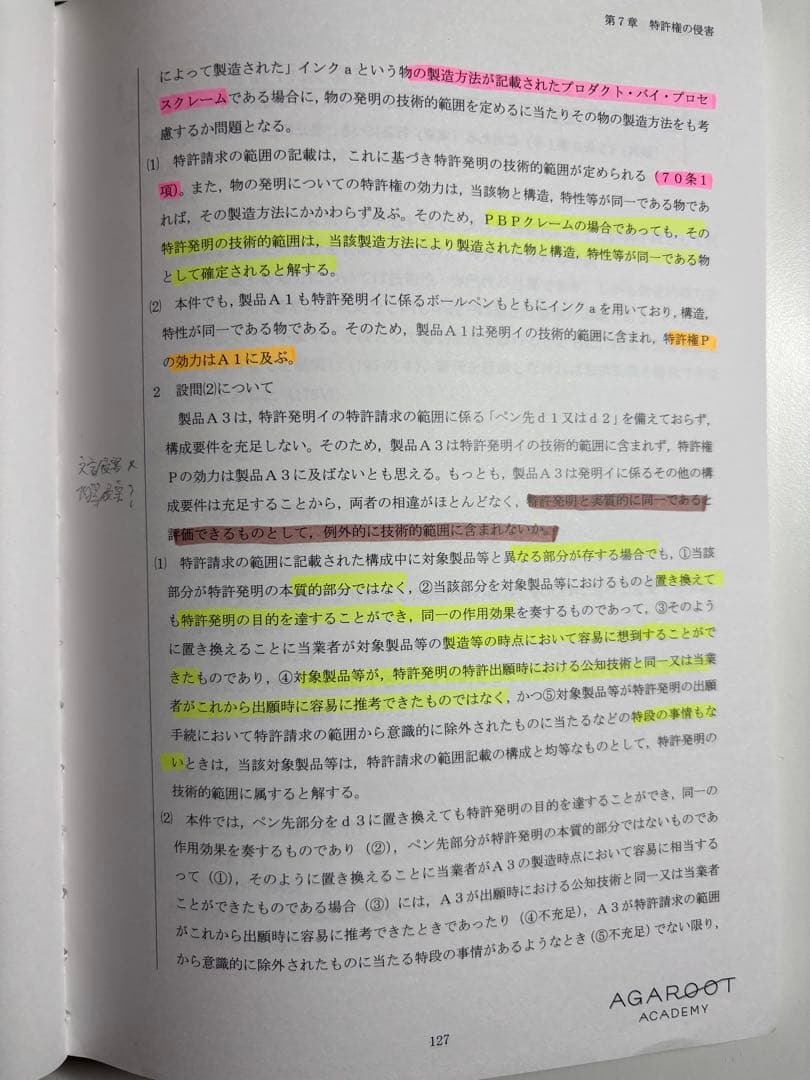 第7章 特許権の侵害
によって製造された」インクaという物の製造方法が記載されたプロダクト・バイ・プロセ
スクレームである場合に,物の発明の技術的範囲を定めるに当たりその物の製造方法をも考
慮するか問題となる。
⑴ 特許請求の範囲の記載は,これに基づき特許発明の技術的範囲が定められる(70条1
項)。また,物の発明についての特許権の効力は,当該物と構造,特性等が同一である物であ
れば,その製造方法にかかわらず及ぶ。そのため,PBPクレームの場合であっても,その
特許発明の技術的範囲は,当該製造方法により製造された物と構造,特性等が同一である物
として確定されると解する。
⑵ 本件でも,製品A1も特許発明イに係るボールペンもともにインクaを用いており,構造,
特性が同一である物である。そのため,製品A1は発明イの技術的範囲に含まれ,特許権P
の効力はA1に及ぶ。
2 設問⑵について
製品A3は,特許発明イの特許請求の範囲に係る「ペン先d1又はd2」を備えておらず,
構成要件を充足しない。そのため,製品A3は特許発明イの技術的範囲に含まれず,特許権
Pの効力は製品A3に及ばないとも思える。もっとも,製品A3は発明イに係るその他の構
成要件は充足することから,両者の相違がほとんどなく,特許発明と実質的に同一であると
評価できるものとして,例外的に技術的範囲に含まれないか。
文言侵害×
均等侵害?
⑴ 特許請求の範囲に記載された構成中に対象製品等と異なる部分が存する場合でも,①当該
部分が特許発明の本質的部分ではなく,②当該部分を対象製品等におけるものと置き換えて
も特許発明の目的を達することができ,同一の作用効果を奏するものであって,③そのよう
に置き換えることに当業者が対象製品等の製造等の時点において容易に想到することがで
きたものであり,④対象製品等が,特許発明の特許出願時における公知技術と同一又は当業
者がこれから出願時に容易に推考できたものではなく,かつ⑤対象製品等が特許発明の出願
手続において特許請求の範囲から意識的に除外されたものに当たるなどの特段の事情もな
いときは,当該対象製品等は,特許請求の範囲記載の構成と均等なものとして,特許発明の
技術的範囲に属すると解する。
⑵ 本件では,ペン先部分をd3に置き換えても特許発明の目的を達することができ,同一の
作用効果を奏するものであり(②),ペン先部分が特許発明の本質的部分ではないものであ
って(①),そのように置き換えることに当業者がA3の製造時点において容易に相当する
ことができたものである場合(③)には,A3が出願時における公知技術と同一又は当業者
がこれから出願時に容易に推考できたときであったり(④不充足),A3が特許請求の範囲
から意識的に除外されたものに当たる特段の事情があるようなとき(⑤不充足)でない限り,
AGAROOT
ACADEMY
127